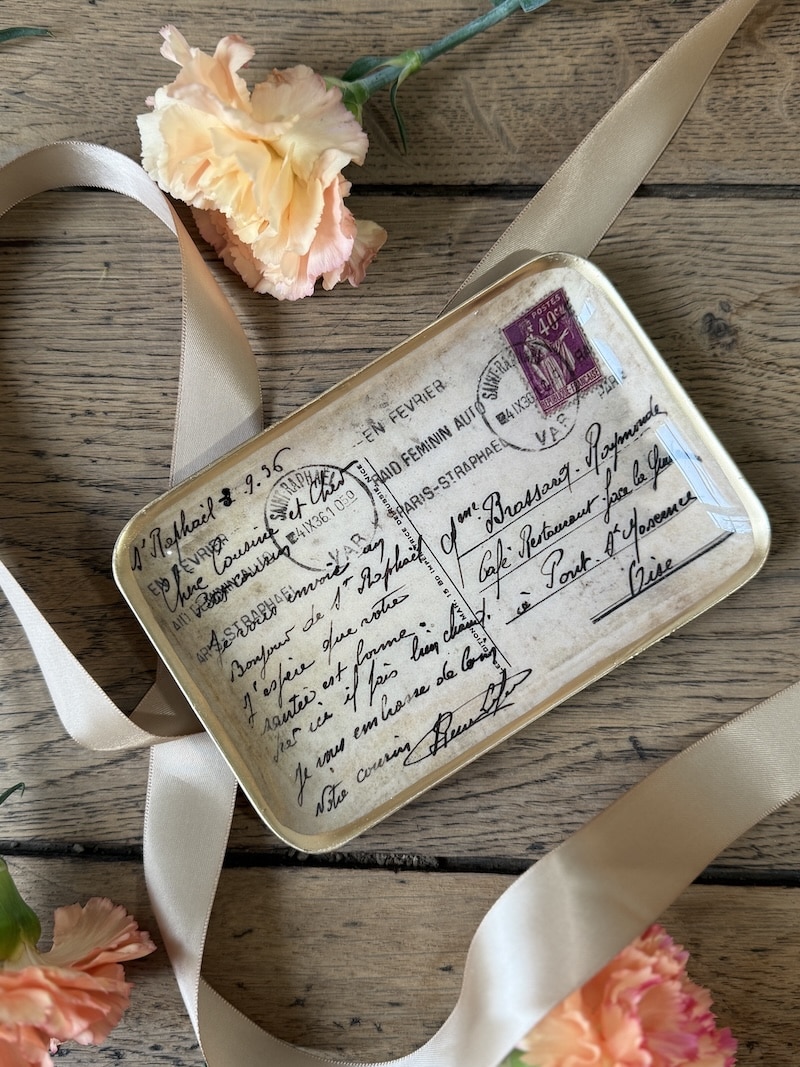 St Raphaël 3.9.36
Chère Cousine et Cher
cousin
Je vous envoie un
Bonjour de St Raphaël
J'espère que votre
santée est bonne.
ici il fais bien chaud.
Je vous embrasse de loin
Votre cousin
EN FEVRIER
RAID FEMININ AUTO
PARIS-ST RAPHAEL
SAINT-RAPHAEL
4 IX 36 1050
VAR
EN FEVRIER
RAID FEMININ AUTO
PARIS-ST RAPHAEL
SAINT-RAPHAEL
4 IX 36
VAR
POSTES
40c
REPUBLIQUE FRANÇAISE
Mme Brassard. Raymonde
Café Restaurant face la
à Pont. Ste Maxence
Oise